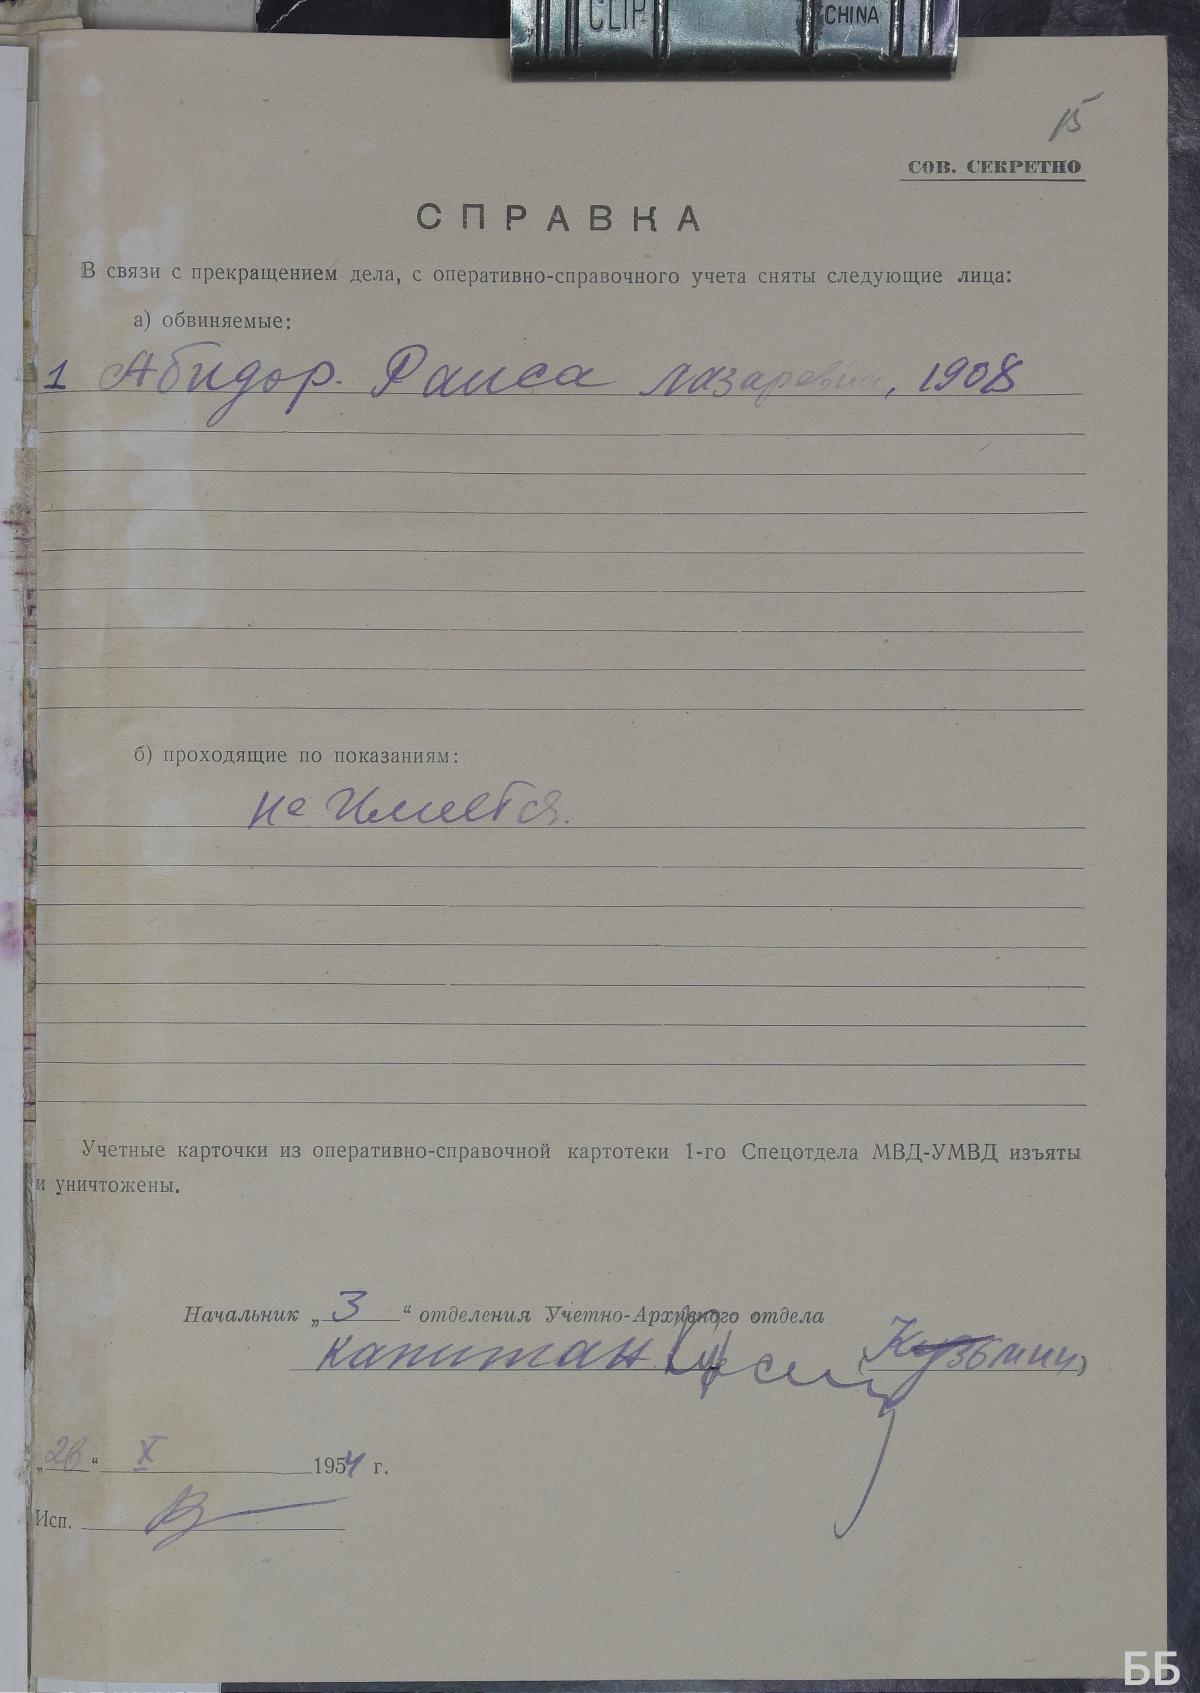 CLIP
CHINA
15
СОВ. СЕКРЕТНО
СПРАВКА
В связи с прекращением дела, с оперативно-справочного учета сняты следующие лица:
а) обвиняемые:
1 Абидор. Раиса Лазаревна, 1908
б) проходящие по показаниям:
не имеется.
Учетные карточки из оперативно-справочной картотеки 1-го Спецотдела МВД-УМВД изъяты
и уничтожены.
Начальник „3“ отделения Учетно-Архивного отдела
капитан (Кузьмин)
„26“ X 1954 г.
Исп.
ББ